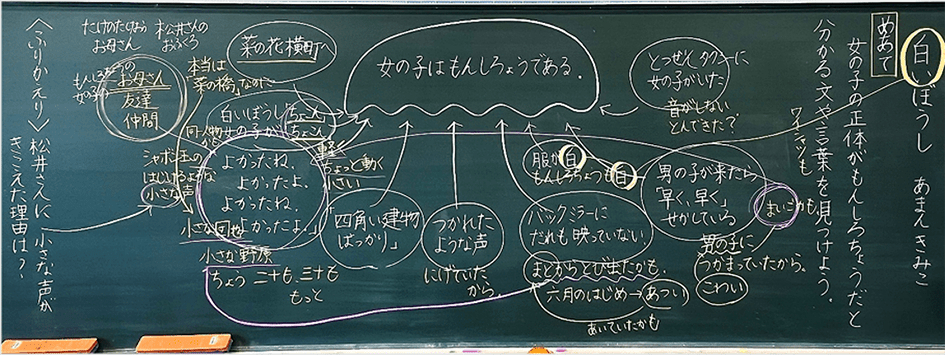 白いぼうし　あまんきみこ
めあて
女の子の正体がもんしろちょうだと
分かる文や言葉を見つけよう。
ワーニングも
女の子はもんしろちょうである。
とつぜんタクシーに
女の子がいた
音がしない
とんできた？
男の子が来たら
「早く、早く」
せかしている
まいごかも
男の子に
つかまっていたから。
こわい
服が白
もんしろちょうも白
バックミラーに
だれも映っていない
まどからとび出たかも。
六月のはじめ→あつい
あいていたかも
つかれた
ような声
にげていた
から。
「四角い建物
ばっかり」
菜の花横町へ
本当は
菜の橋なのに
白いぼうし
女の子が
ちょこん
ちょこん
軽く
ちょっと動く
小さい
よかったね、
よかったよ。
よかったね、
よかったよ。」
小さな団地
小さな野原
ちょう　二十も、三十も
もっと
松井さんの
おふくろ
たけのたけお
お母さん
もんしろちょうの
女の子の
お母さん
友達
仲間
シャボン玉の
はじけるような
小さな声
〈ふりかえり〉松井さんに　小さな声が
きこえた理由は？